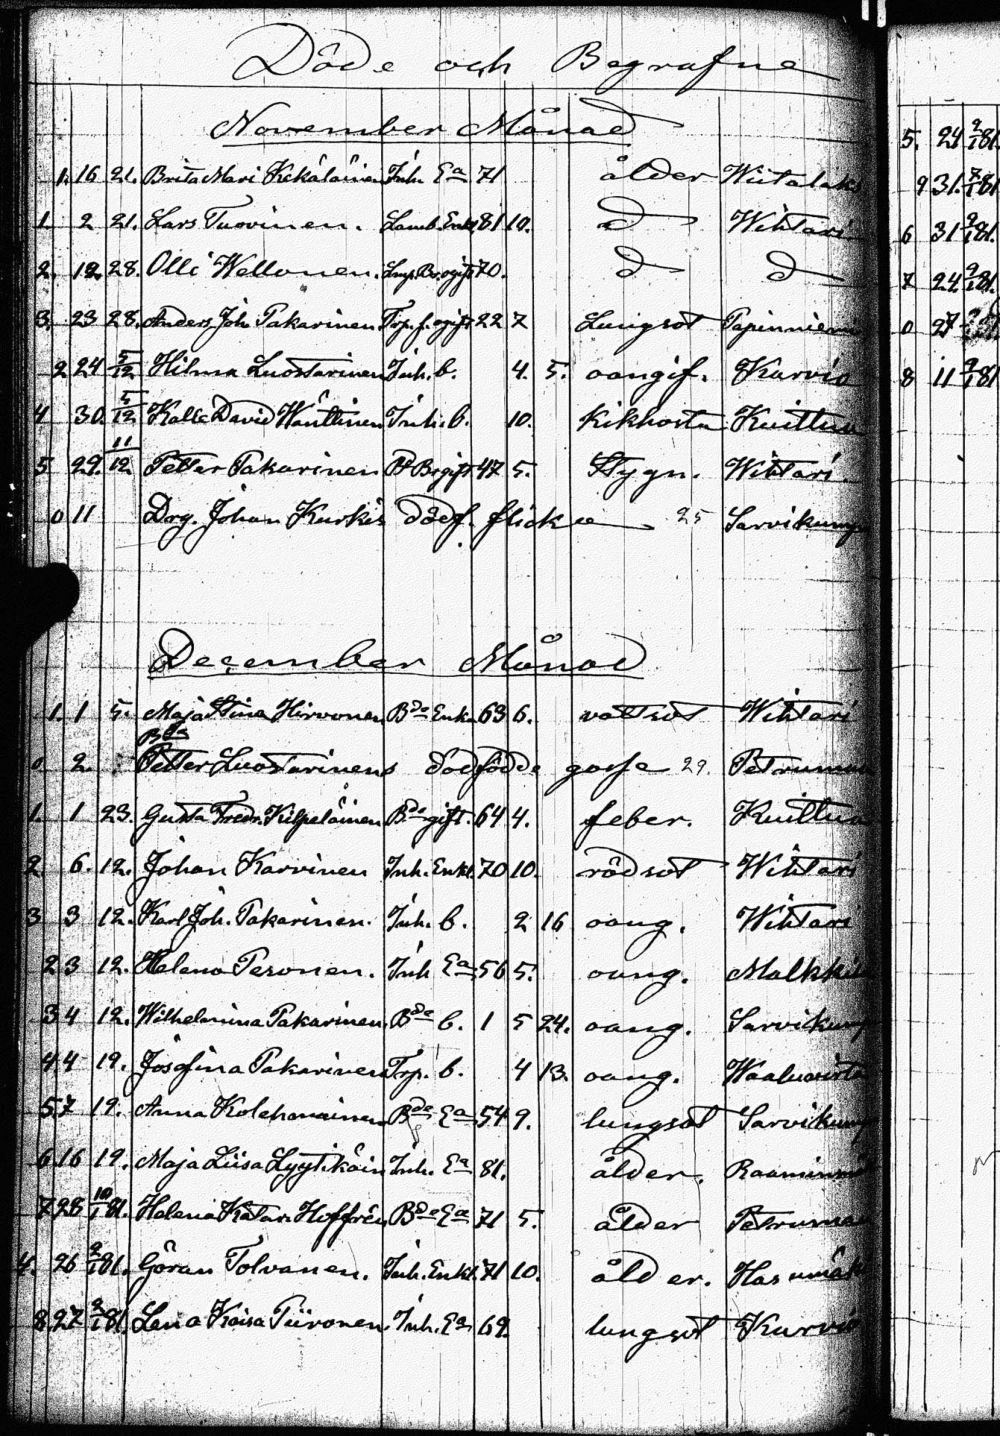 Döde och Begrafne
November Månad
1. 16 21. Brita Mari Kekäläinen Inh. Ea 71 ålder Wiitalaks
1. 2 21. Lars Tuovinen. Lamb. Enkl 81 10. d Wihtari
2. 12. 28. Olli Wellonen. 70. d d
3. 23 28. Anders Joh Takarinen Trp. f. ogift 22 7 Lungsot Papinniemi
2 24 5/12 Hilma Luostarinen Inh. b. 4. 5. oangif. Karvio
4 30. 5/12 Kalle David Wänttinen Inh. b. 10. Kikhosta Kuittua
5. 29. 11/12 Petter Takarinen gift 47 5. Stygn. Wihtari.
0 11 Drg. Johan Kurkis dödf. flicka 25 Sarvikump
December Månad
1. 1 5. Maja Stina Hirvonen Bde Enk. 63 6. vattsot Wihtari
Bde
0 2. Petter Luostarinens dödfödde gosse 29. Petruma
1. 1 23. Gusta Fredr. Kilpeläinen Bde gift. 64 4. feber. Kuittua
2. 6. 12. Johan Karvinen Inh. Enkl. 70 10. rödsot Wihtari
3 3 12. Karl Joh. Takarinen. Inh. b. 2 16 oang. Wihtari
2 3 12. Helena Pesonen. Inh Ea 56 5. oang. Malkkis
3 4 12. Wilhelmina Takarinen. Bde b. 1 5 24. oang. Sarvikump
4 4 19. Josefina Takarinen Trp. b. 4 13. oang. Waaluvirta
5 7 19. Anna Kolehmainen Bde Ea 54 9. lungsot Sarvikump
6 16 19. Maja Liisa Lyytikäin Inh. Ea 81. ålder.
7 28 10/1 81. Helena Katar. Hoffrén Bde Ea 71 5. ålder Petruma
4. 26 9/1 81. Göran Tolvanen. Inh. Enkl. 71 10. ålder. Hasumäki
8 27 9/1 81. Lena Kaisa Tiironen. Inh. Ea 69. lungsot Karvio
5. 24 9/1 81.
9 31. 7/1 81
6 31 9/1 81.
7 24 9/1 81.
0 27
8 11 9/1 81